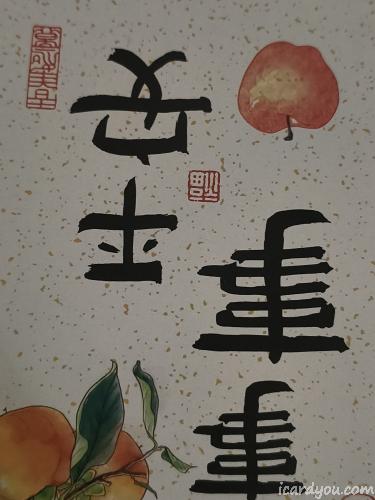 事事
平安
福
icardyou.com